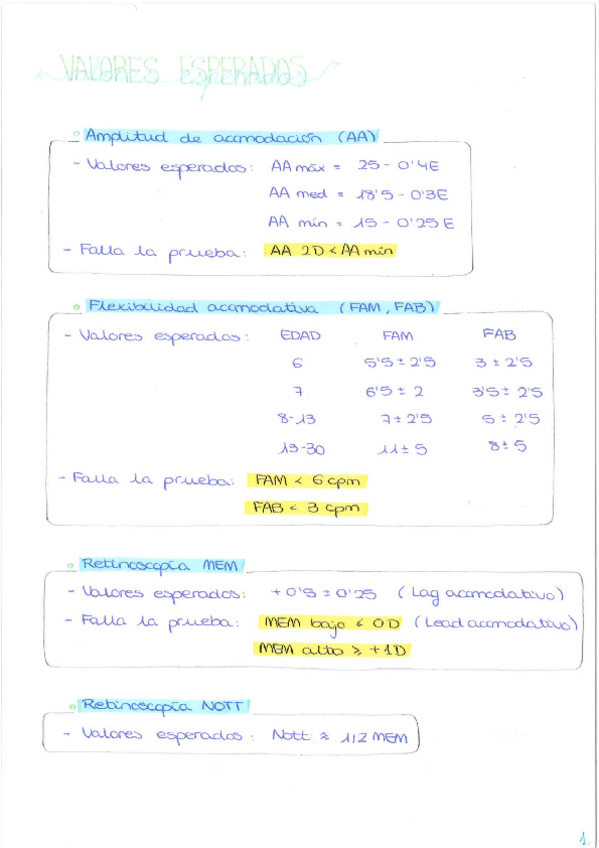 VALORES ESPERADOS
• Amplitud de acomodación (AA)
- Valores esperados: AA máx = 25 - 0'4E
AA med = 18'5 - 0'3E
AA mín = 15 - 0'25 E
- Falla la prueba: AA 2D < AA mín
• Flexibilidad acomodativa (FAM, FAB)
- Valores esperados: EDAD FAM FAB
6 5'5 ± 2'5 3 ± 2'5
7 6'5 ± 2 3'5 ± 2'5
8-13 7 ± 2'5 5 ± 2'5
13-30 11 ± 5 8 ± 5
- Falla la prueba: FAM < 6 cpm
FAB < 3 cpm
• Retinoscopía MEM
- Valores esperados: +0'5 ± 0'25 (Lag acomodativo)
- Falla la prueba: MEM bajo ≤ 0D (Lead acomodativo)
MEM alto ≥ +1D
• Retinoscopía NOTT
- Valores esperados: Nott ≈ 1/2 MEM
1.